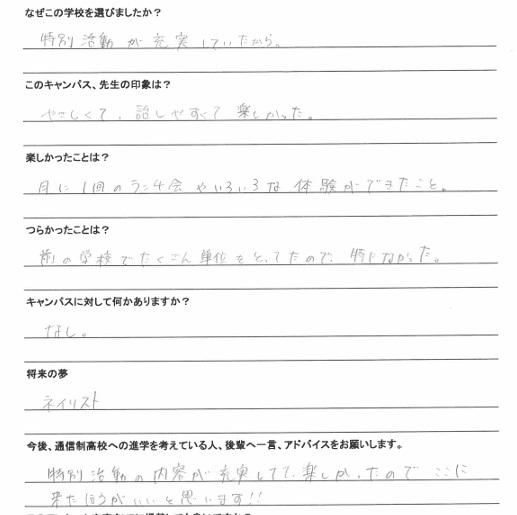 なぜこの学校を選びましたか？
特別活動が充実していたから。
このキャンパス、先生の印象は？
やさしくて、話しやすくて楽しかった。
楽しかったことは？
月に1回のランチ会やいろいろな体験ができたこと。
つらかったことは？
前の学校でたくさん単位をとってたので、特になかった。
キャンパスに対して何かありますか？
なし。
将来の夢
ネイリスト
今後、通信制高校への進学を考えている人、後輩へ一言、アドバイスをお願いします。
特別活動の内容が充実してて、楽しかったのでここに
来たほうがいいと思います!!